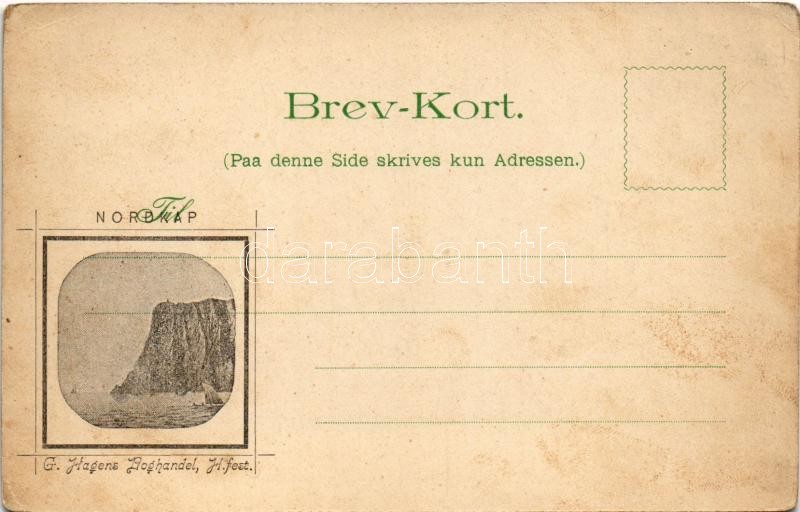 Brev-Kort.
(Paa denne Side skrives kun Adressen.)
Til
NORDKAP
darabanth
G. Hagens Boghandel, H.fest.